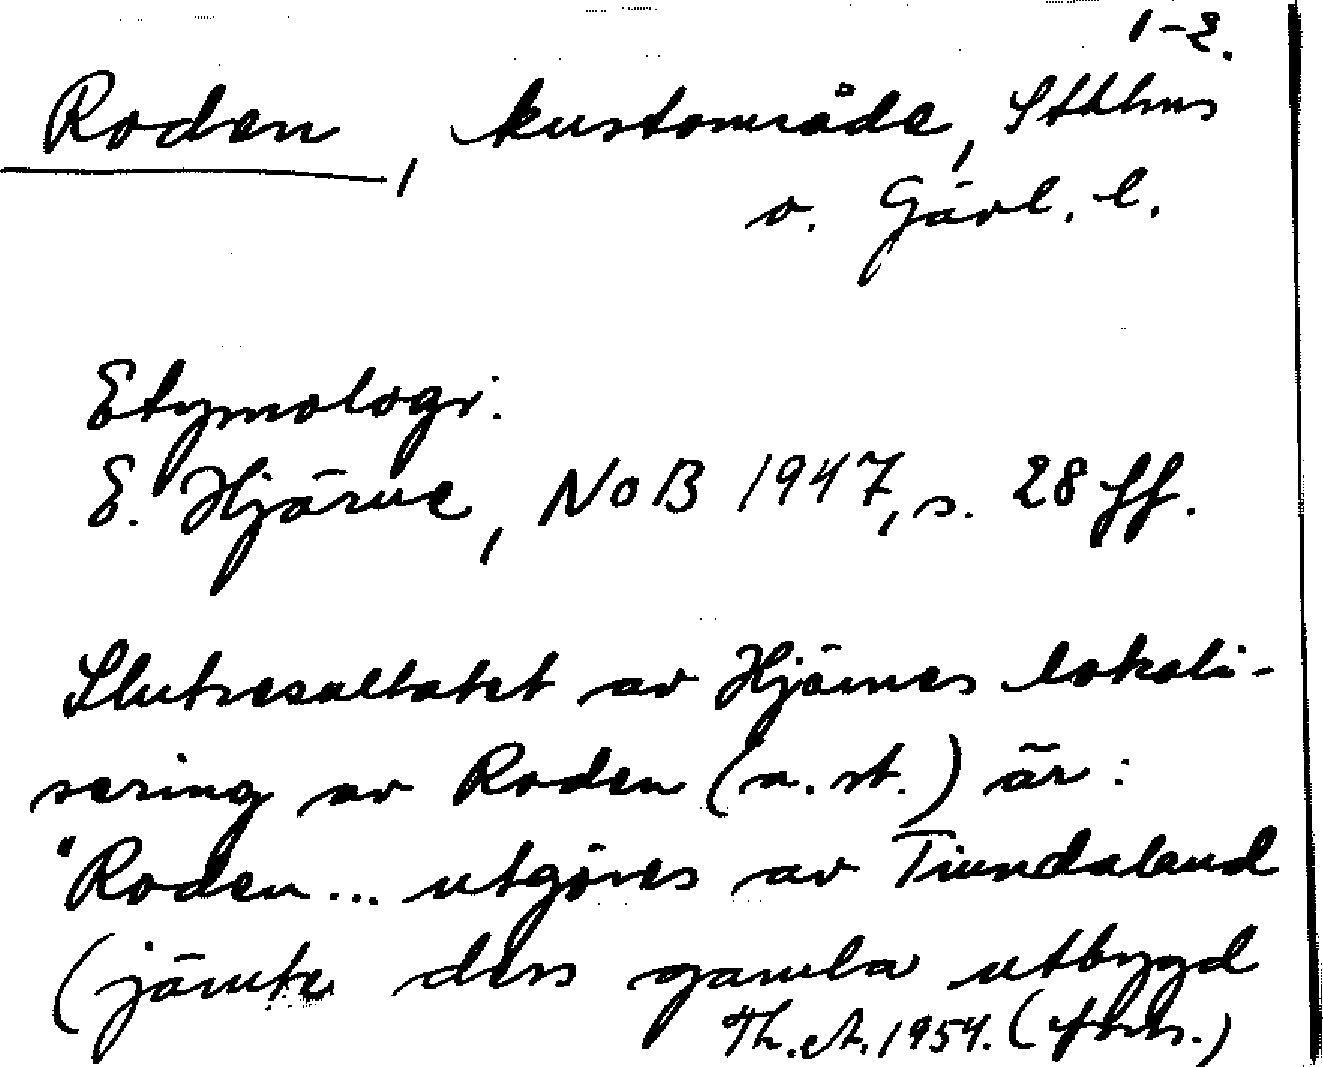 1-2.
Roden, kustområde, Sthlms
o. Gävl. l.
Etymologi:
E. Hjärne, NoB 1947, s. 28 ff.
Slutresultatet av Hjärnes lokali-
sering av Roden (a. st.) är:
"Roden... utgöres av Tiundaland
(jämte dess gamla utbygd
Th. A. 1954. (forts.)